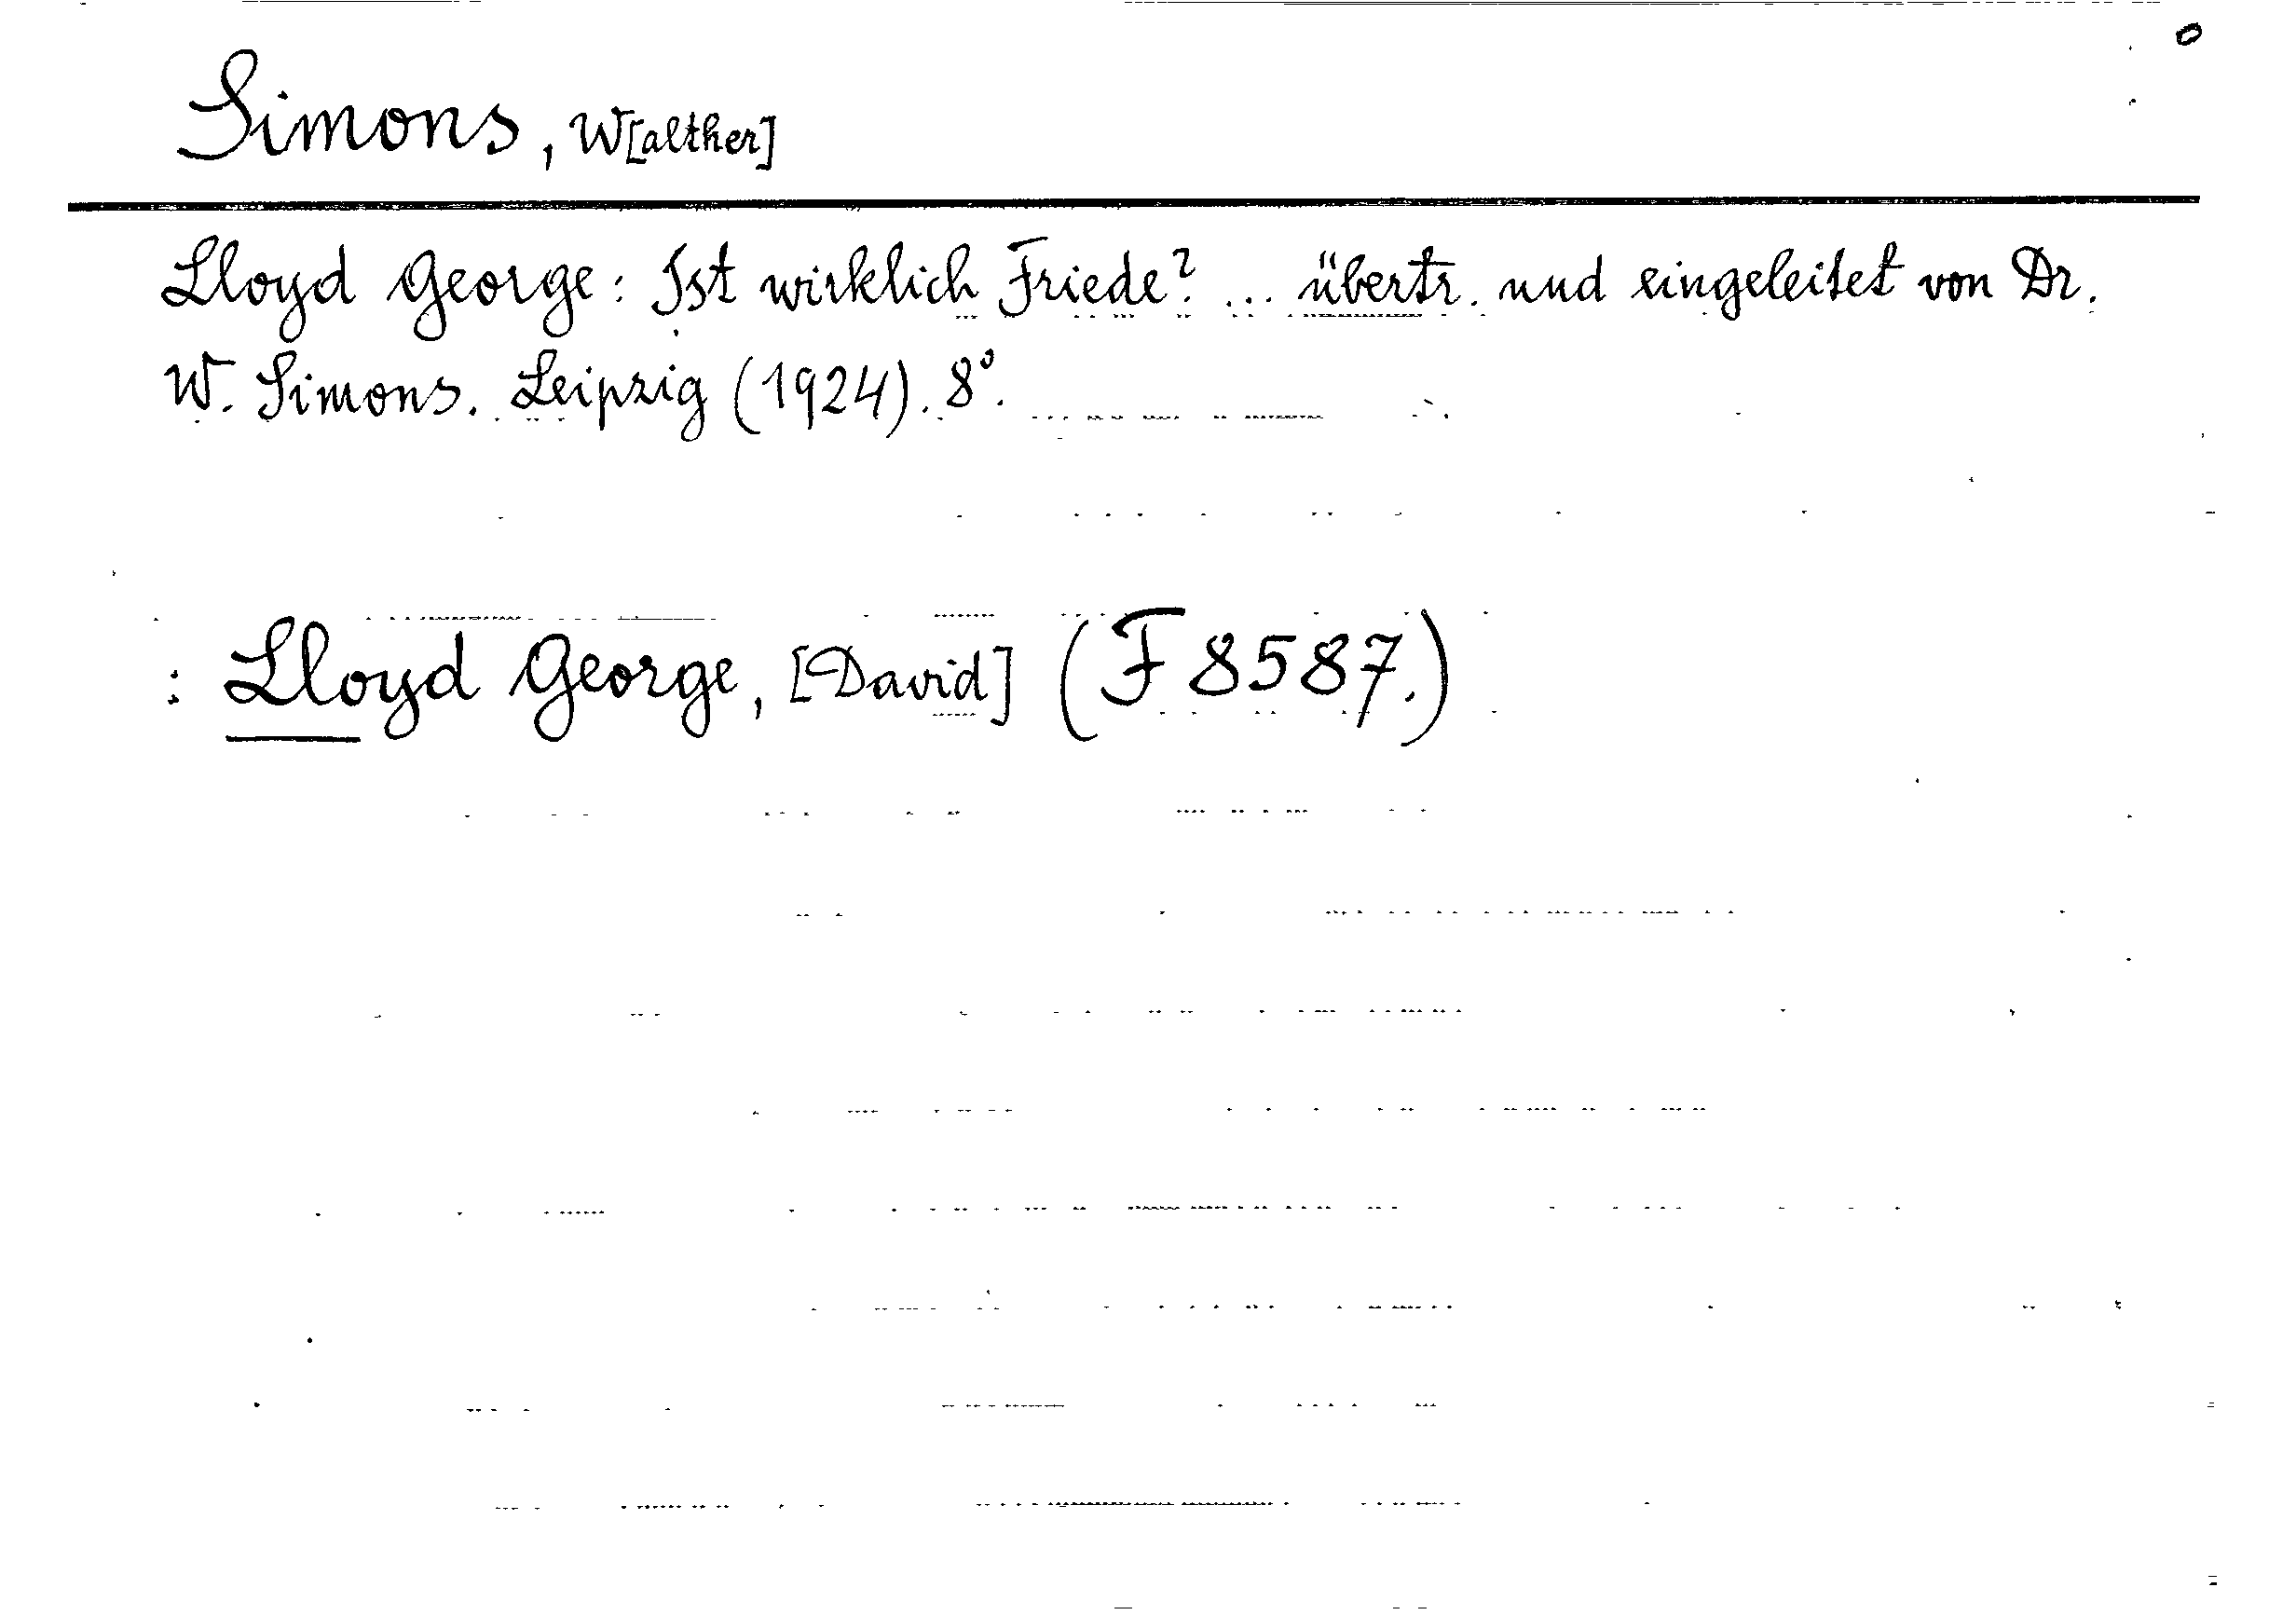 Simons, W[alther]
Lloyd George: Ist wirklich Friede? ... übertr. und eingeleitet von Dr.
W. Simons. Leipzig (1924). 8°.
: Lloyd George, [David] (F 8587.)